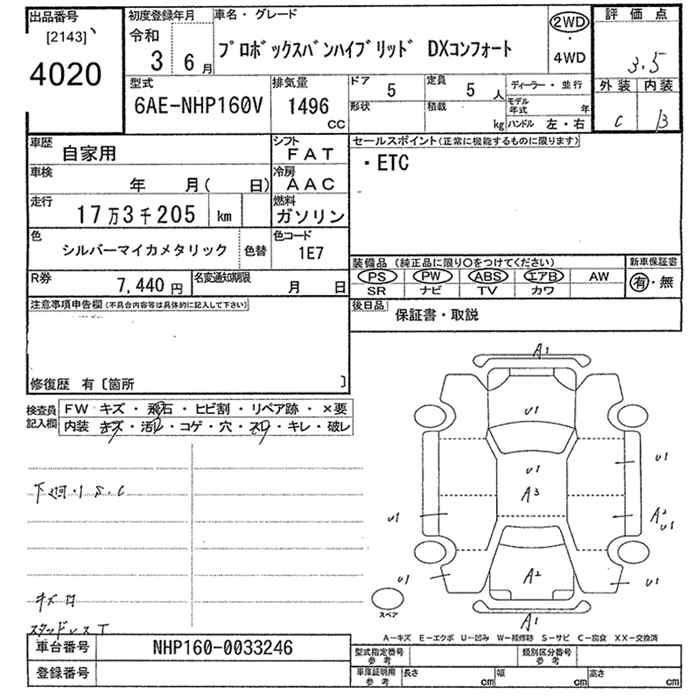 出品番号
[2143]
4020
初度登録年月
令和
3 6月
車名・グレード
プロボックスバンハイブリッド DXコンフォート
2WD
・
4WD
評価点
3.5
外装 内装
C B
型式
6AE-NHP160V
排気量
1496
CC
ドア
5
定員
5 人
形状
積載
kg
ディーラー・並行
モデル年式 年
ハンドル 左・右
車歴
自家用
シフト
FAT
車検
年 月( 日)
冷房
AAC
走行
17万3千205 km
燃料
ガソリン
色
シルバーマイカメタリック
色替
色コード
1E7
R券
7,440円
名変通知期限
月 日
セールスポイント(正常に機能するものに限ります)
・ETC
装備品(純正品に限り○をつけてください)
PS PW ABS エアB AW
SR ナビ TV カワ
新車保証書
有・無
後日品
保証書・取説
注意事項申告欄(不具合内容等は具体的に記入して下さい)
修復歴 有〔箇所 〕
検査員記入欄
FW キズ・飛石・ヒビ割・リペア跡・×要
内装 キズ・汚レ・コゲ・穴・スレ・キレ・破レ
下廻・S.C
キズ
スタッドレス T
A1
U1
U1
A3
U1
U1
A2
U1
U1
A2
A1
スペア
A-キズ E-エクボ U-凹み W-補修跡 S-サビ C-腐食 XX-交換済
車台番号
NHP160-0033246
登録番号
型式指定番号
参考
類別区分番号
参考
車庫証明用
参考
長さ cm 幅 cm 高さ cm